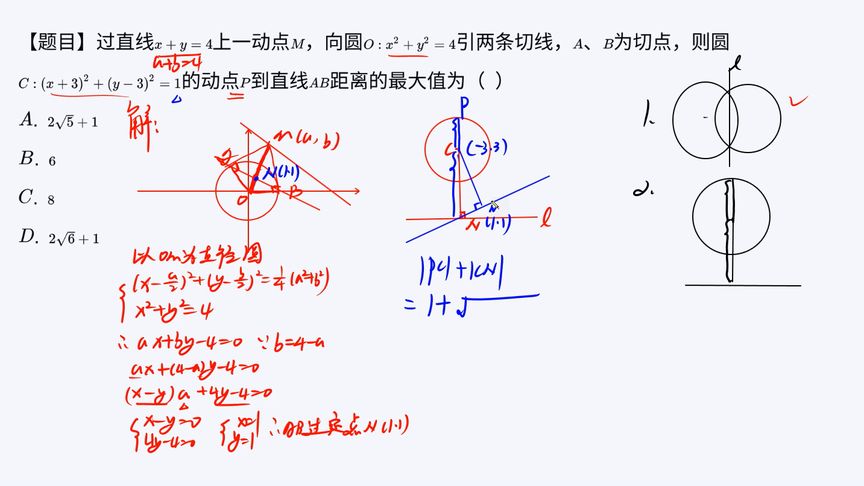 【题目】过直线x + y = 4上一动点M，向圆O : x² + y² = 4引两条切线，A、B为切点，则圆
a+b=4
C : (x + 3)² + (y − 3)² = 1的动点P到直线AB距离的最大值为（ ）
A. 2√5 + 1
B. 6
C. 8
D. 2√6 + 1
解:
M(a,b)
N(1,1)
O
B
P
C (-3,3)
N(1,1)
l
|PC|+|CN|
=1+√
l
1.
2.
以OM为直径圆
(x-a/2)²+(y-b/2)²=1/4(a²+b²)
x²+y²=4
∴ax+by-4=0 ∵b=4-a
ax+(4-a)y-4=0
(x-y)a+4y-4=0
{x-y=0
4y-4=0
{x=1
y=1
∴AB过定点N(1,1)